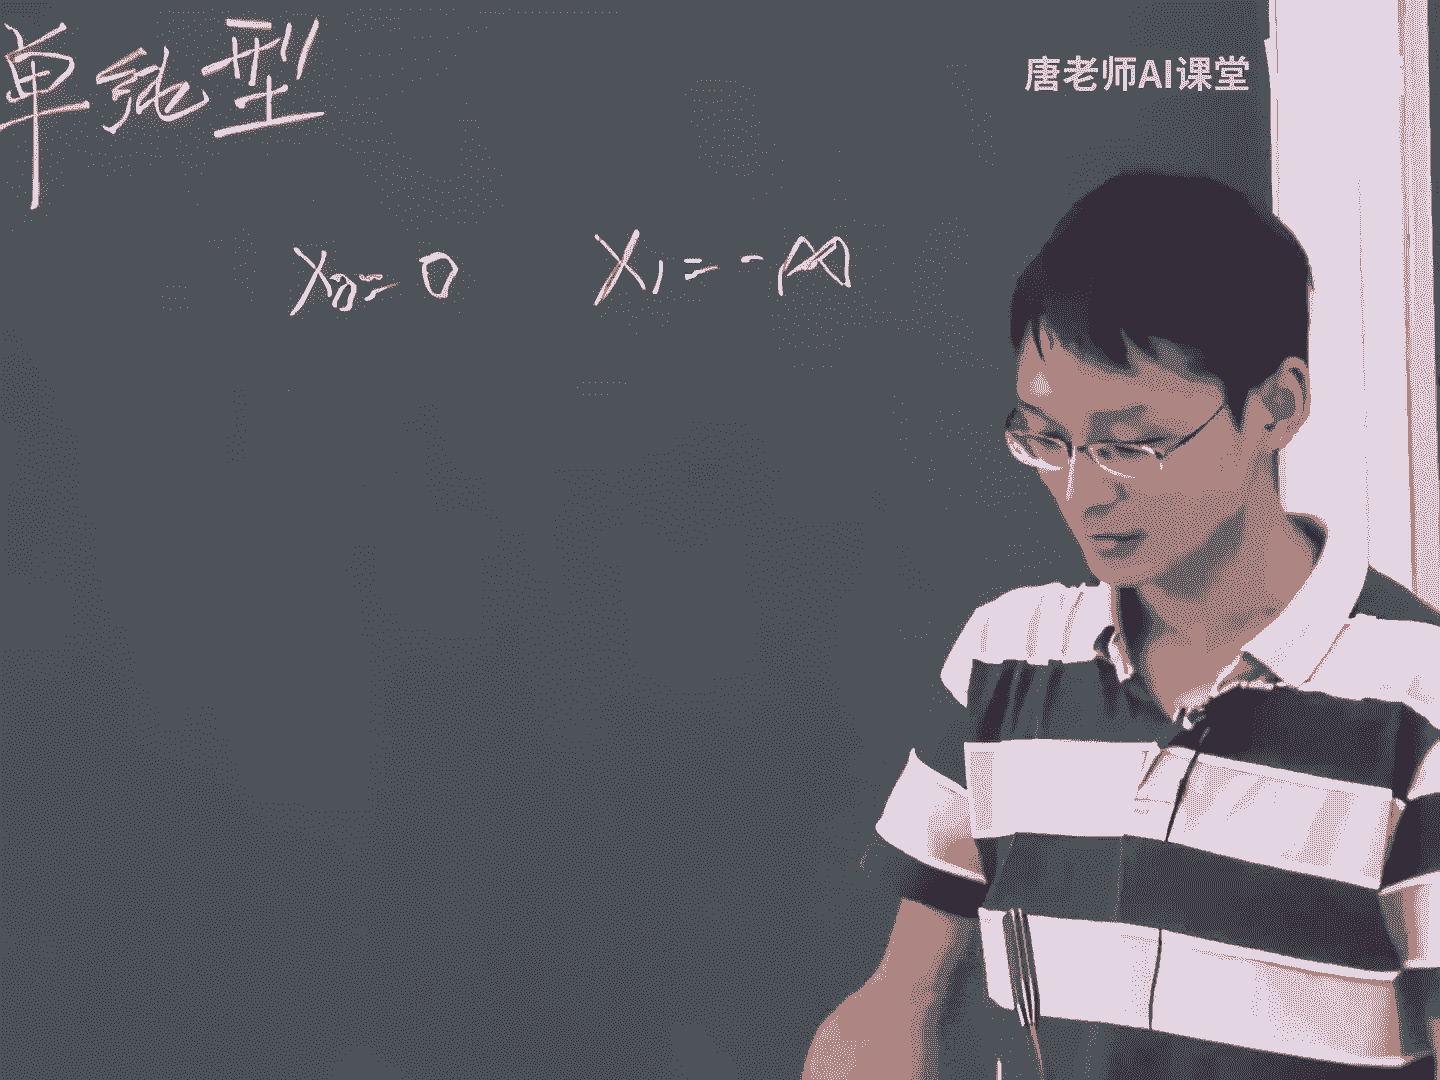 单纯型
唐老师AI课堂
X₀=0 X₁=-M